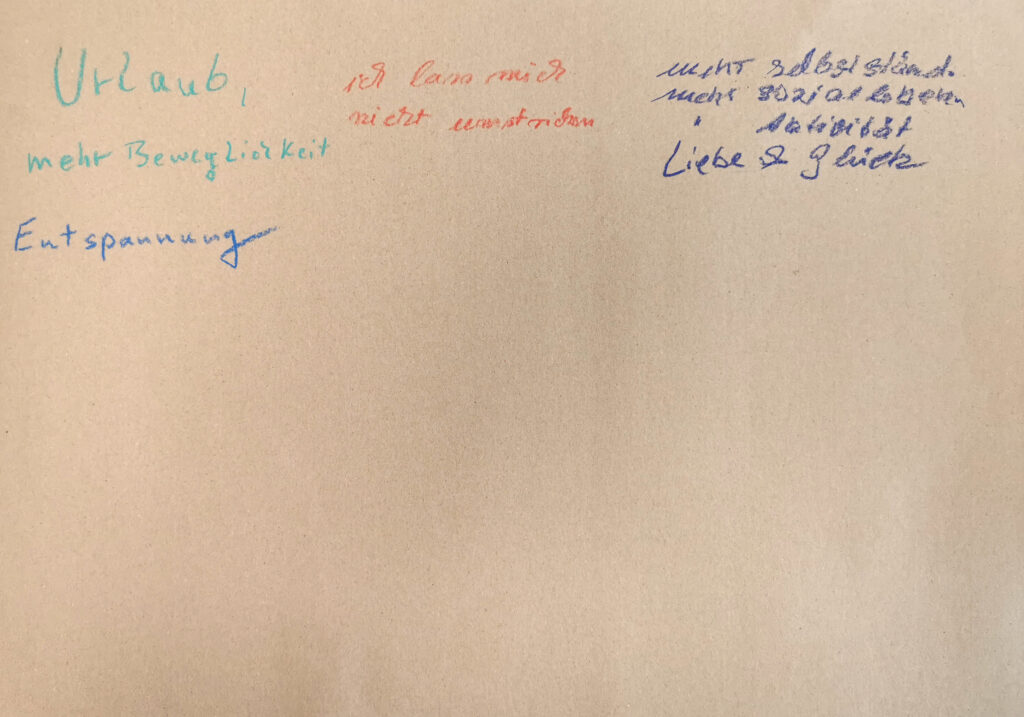 Urlaub,
mehr Beweglichkeit
Entspannung
ich lass mich
nicht
mehr selbständ.
mehr sozialleben
" Aktivität
Liebe & Glück